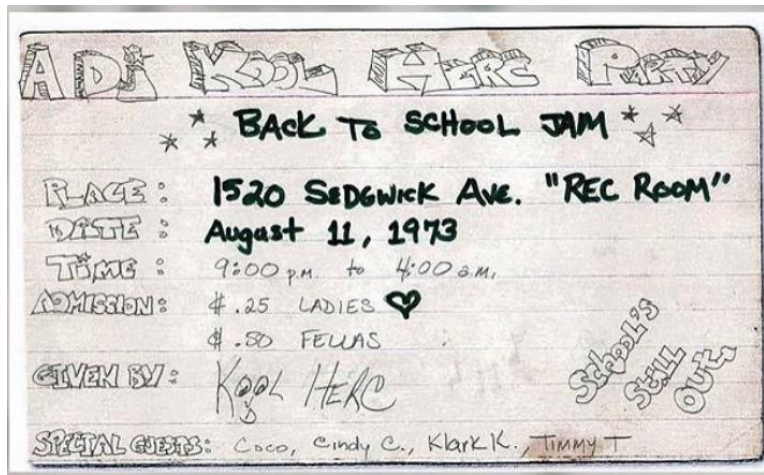 A DJ KOOL HERC PARTY
BACK TO SCHOOL JAM
PLACE: 1520 SEDGWICK AVE. "REC ROOM"
DATE: August 11, 1973
TIME: 9:00 p.m. to 4:00 a.m.
ADMISSION: $.25 LADIES
$.50 FELLAS
GIVEN BY: KOOL HERC
SCHOOL'S
STILL
OUT.
SPECIAL GUESTS: Coco, Cindy C., Klark K., TIMMY T